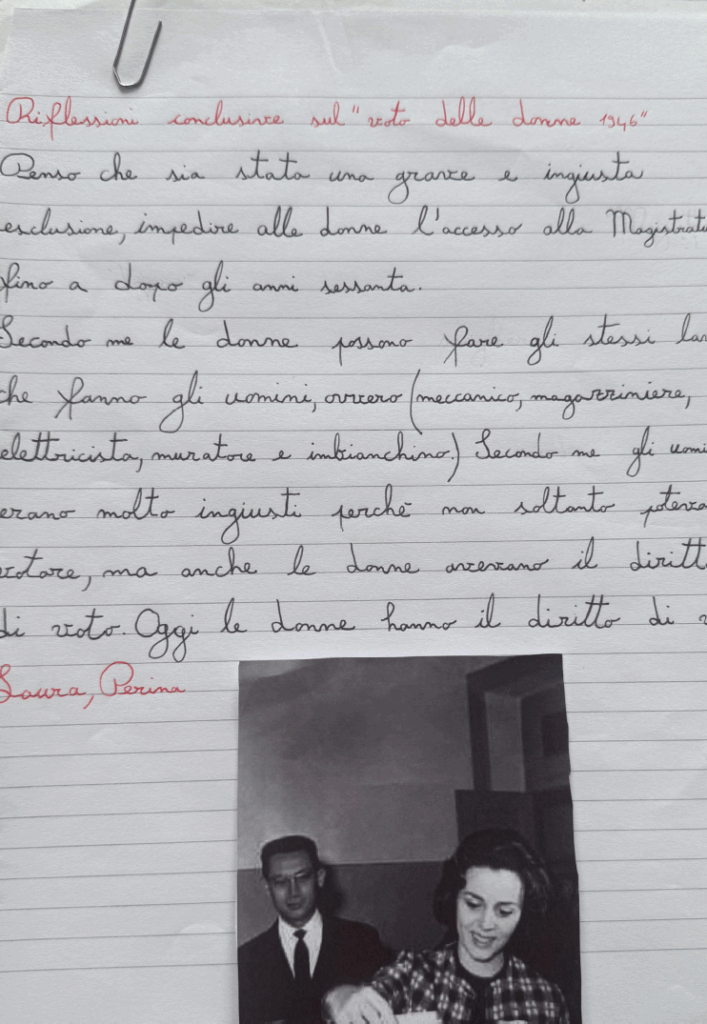 Riflessioni conclusive sul "voto delle donne 1946"
Penso che sia stata una grave e ingiusta
esclusione, impedire alle donne l'accesso alla Magistratu
fino a dopo gli anni sessanta.
Secondo me le donne possono fare gli stessi lav
che fanno gli uomini, ovvero (meccanico, magazziniere,
elettricista, muratore e imbianchino.) Secondo me gli uomi
erano molto ingiusti perchè non soltanto poteva
votare, ma anche le donne avevano il diritt
di voto. Oggi le donne hanno il diritto di v
Laura, Perina